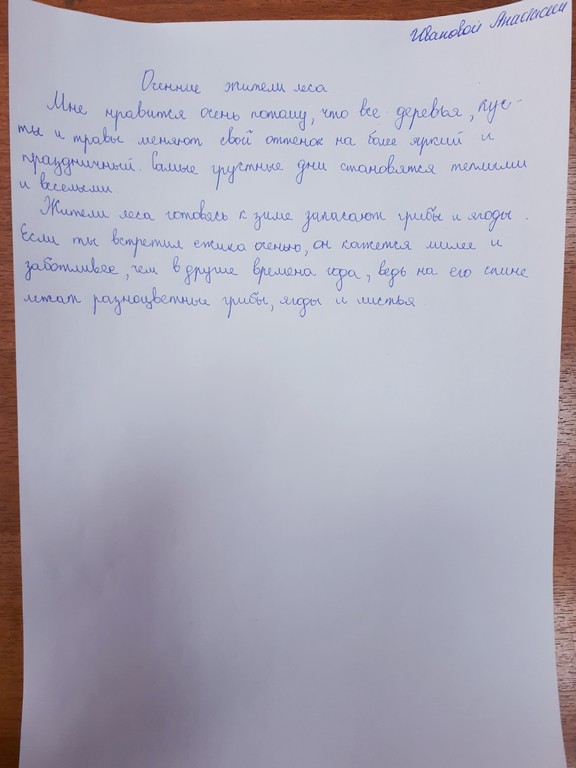 Ивановой Анастасии
Осенние жители леса
Мне нравится осень потому, что все деревья, кус-
ты и травы меняют свой оттенок на более яркий и
праздничный. Самые грустные дни становятся теплыми
и веселыми.
Жители леса готовясь к зиме запасают грибы и ягоды.
Если ты встретил ежика осенью, он кажется милее и
заботливее, чем в другие времена года, ведь на его спине
лежат разноцветные грибы, ягоды и листья.